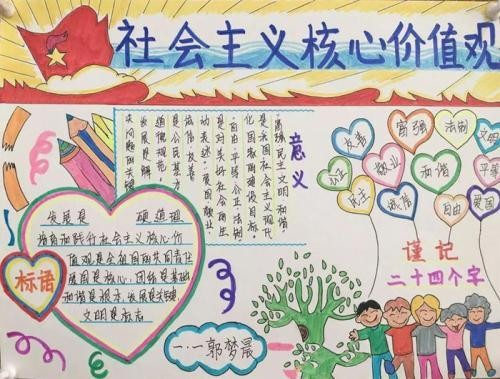 社会主义核心价值观
意义
富强民主文明和谐
是我国社会主义现代
化国家的建设目标
自由平等公正法制
是对美好社会的生
动表述爱国敬业
诚信友善
是公民基本
道德规范
发展是解
决问题的关键
友善
富强
法制
文明
公正
敬业
和谐
平等
民主
诚信
自由
爱国
标语
发展是硬道理
培育和践行社会主义核心价
值观是全社会的共同责任
发展是核心,团结是基础
和谐是根本,发展是关键
文明是标志
谨记
二十四个字
一·一郭梦晨